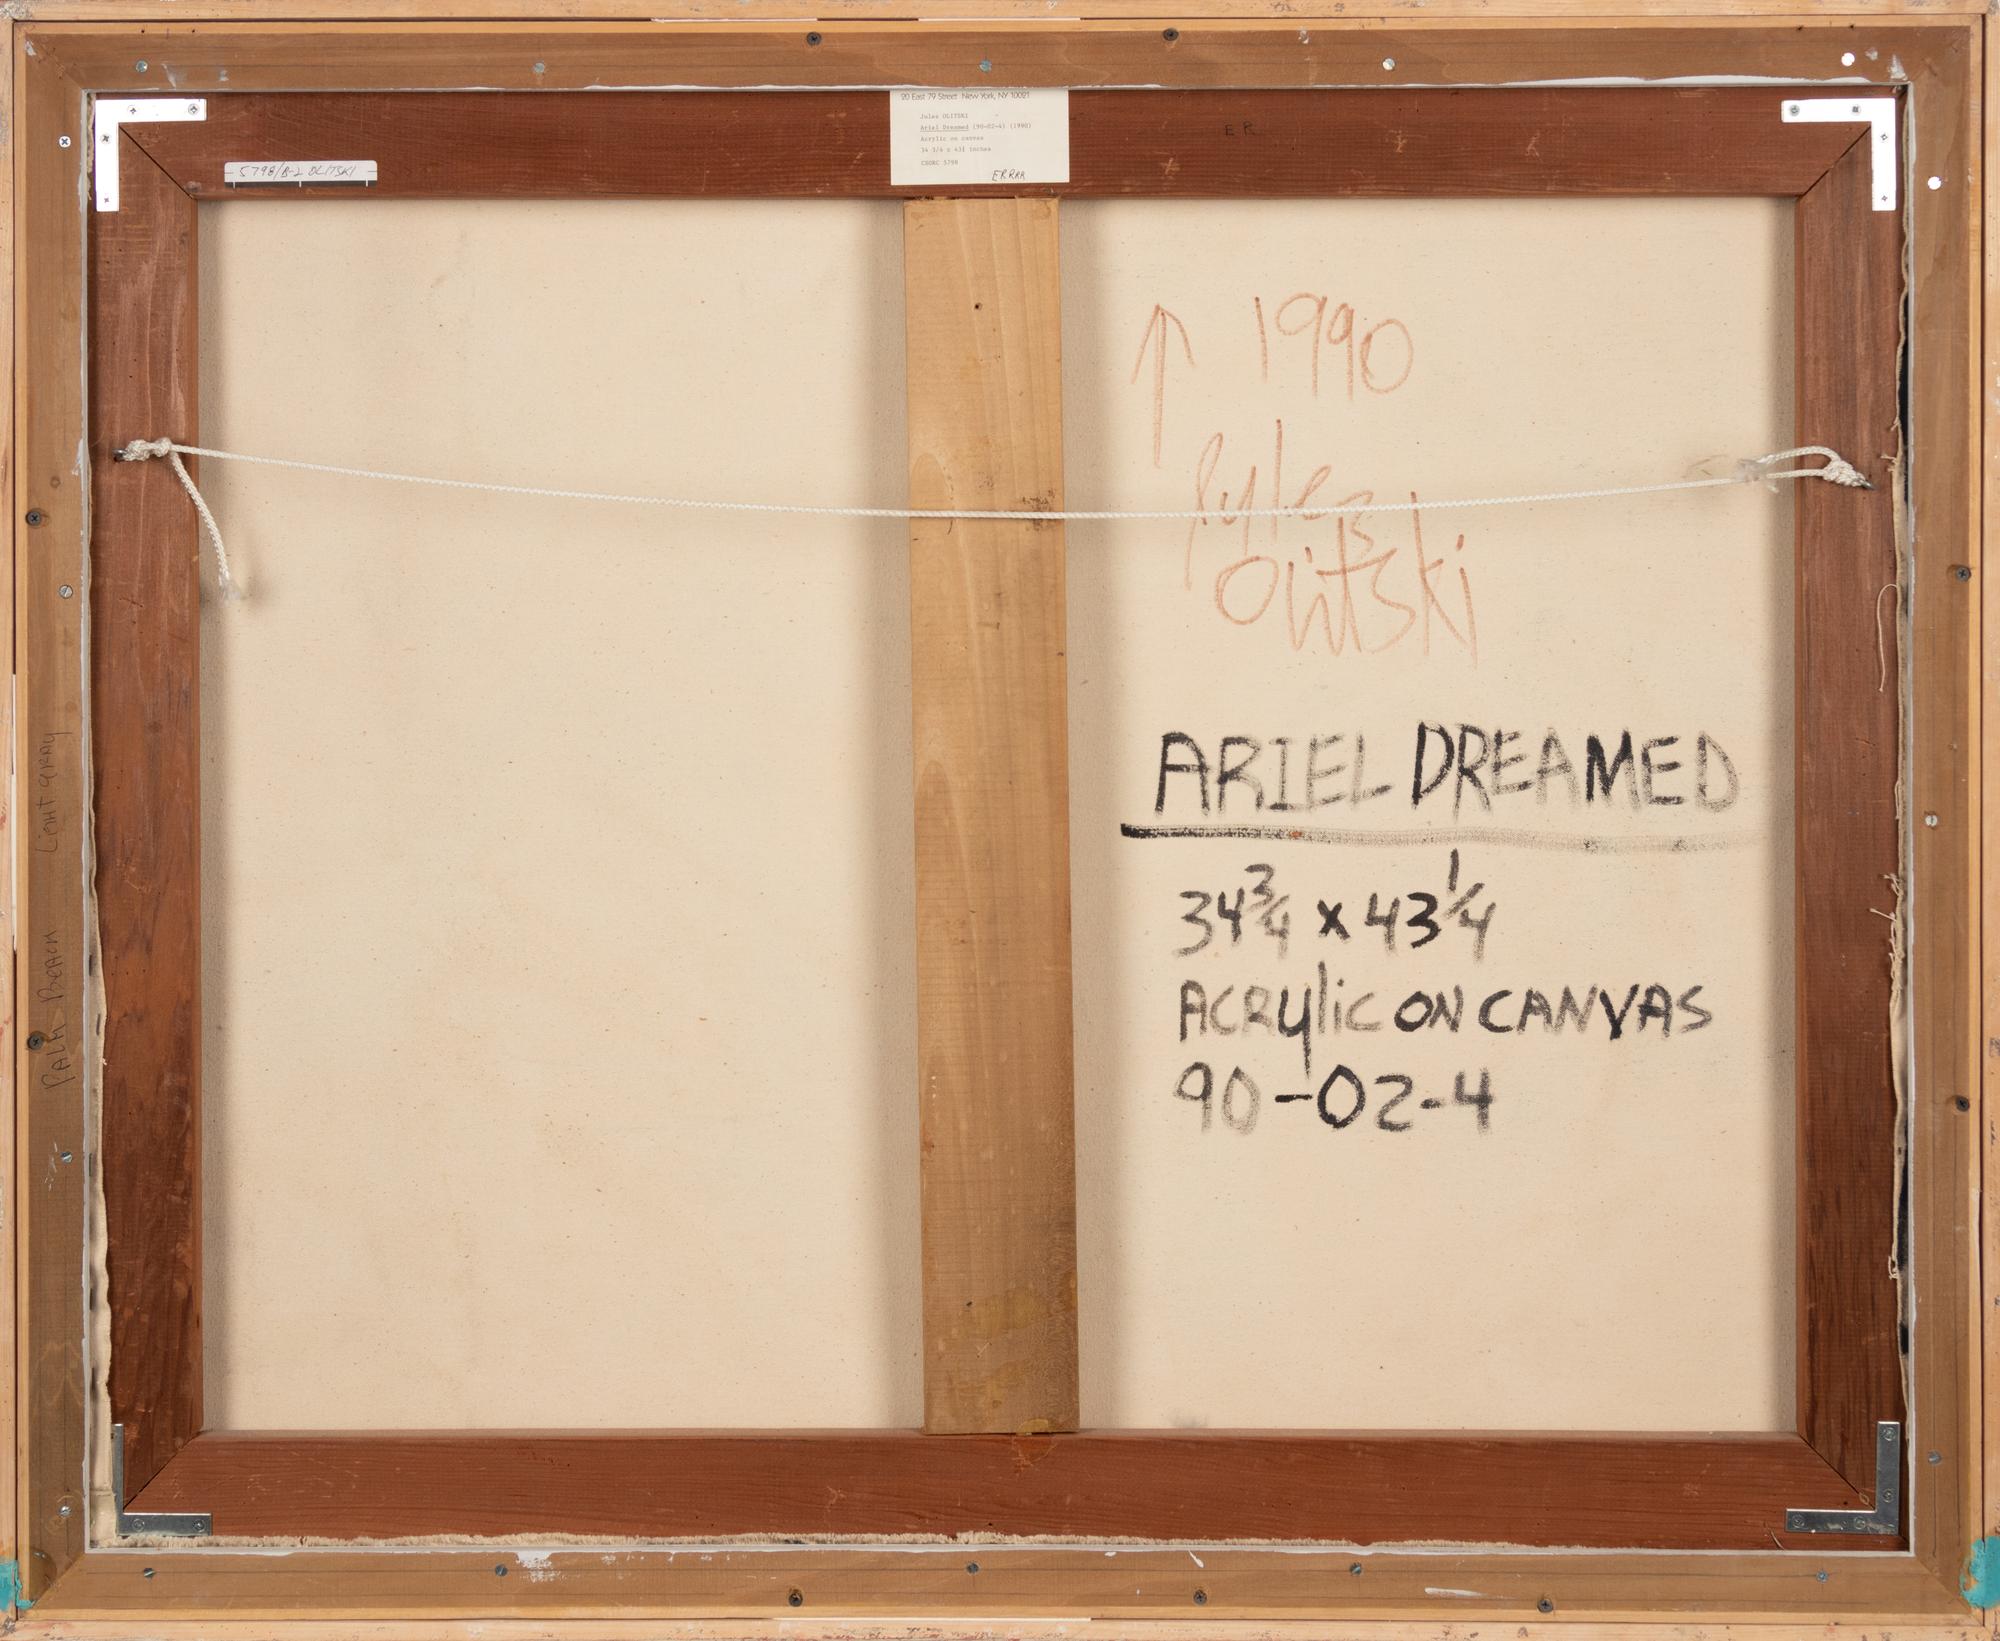 20 East 79 Street New York, NY 10021
Jules OLITSKI
Ariel Dreamed (90-02-4) (1990)
Acrylic on canvas
34 3/4 x 43¼ inches
5798
ERRRR
5798/B-2 OLITSKI
ER
↑ 1990
Jules
Olitski
ARIEL DREAMED
34 3/4 x 43 1/4
ACRylic ON CANVAS
90-02-4
PALM BEACH LIGHT GRAY